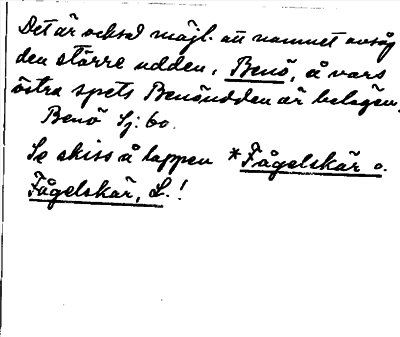 Det är också möjl. att namnet avsåg
den större udden, Benö, å vars
östra spets Benöudden är belägen.
Benö Sj: 60.
Se skiss å lappen *Fågelskär o.
Fågelskär, L.!